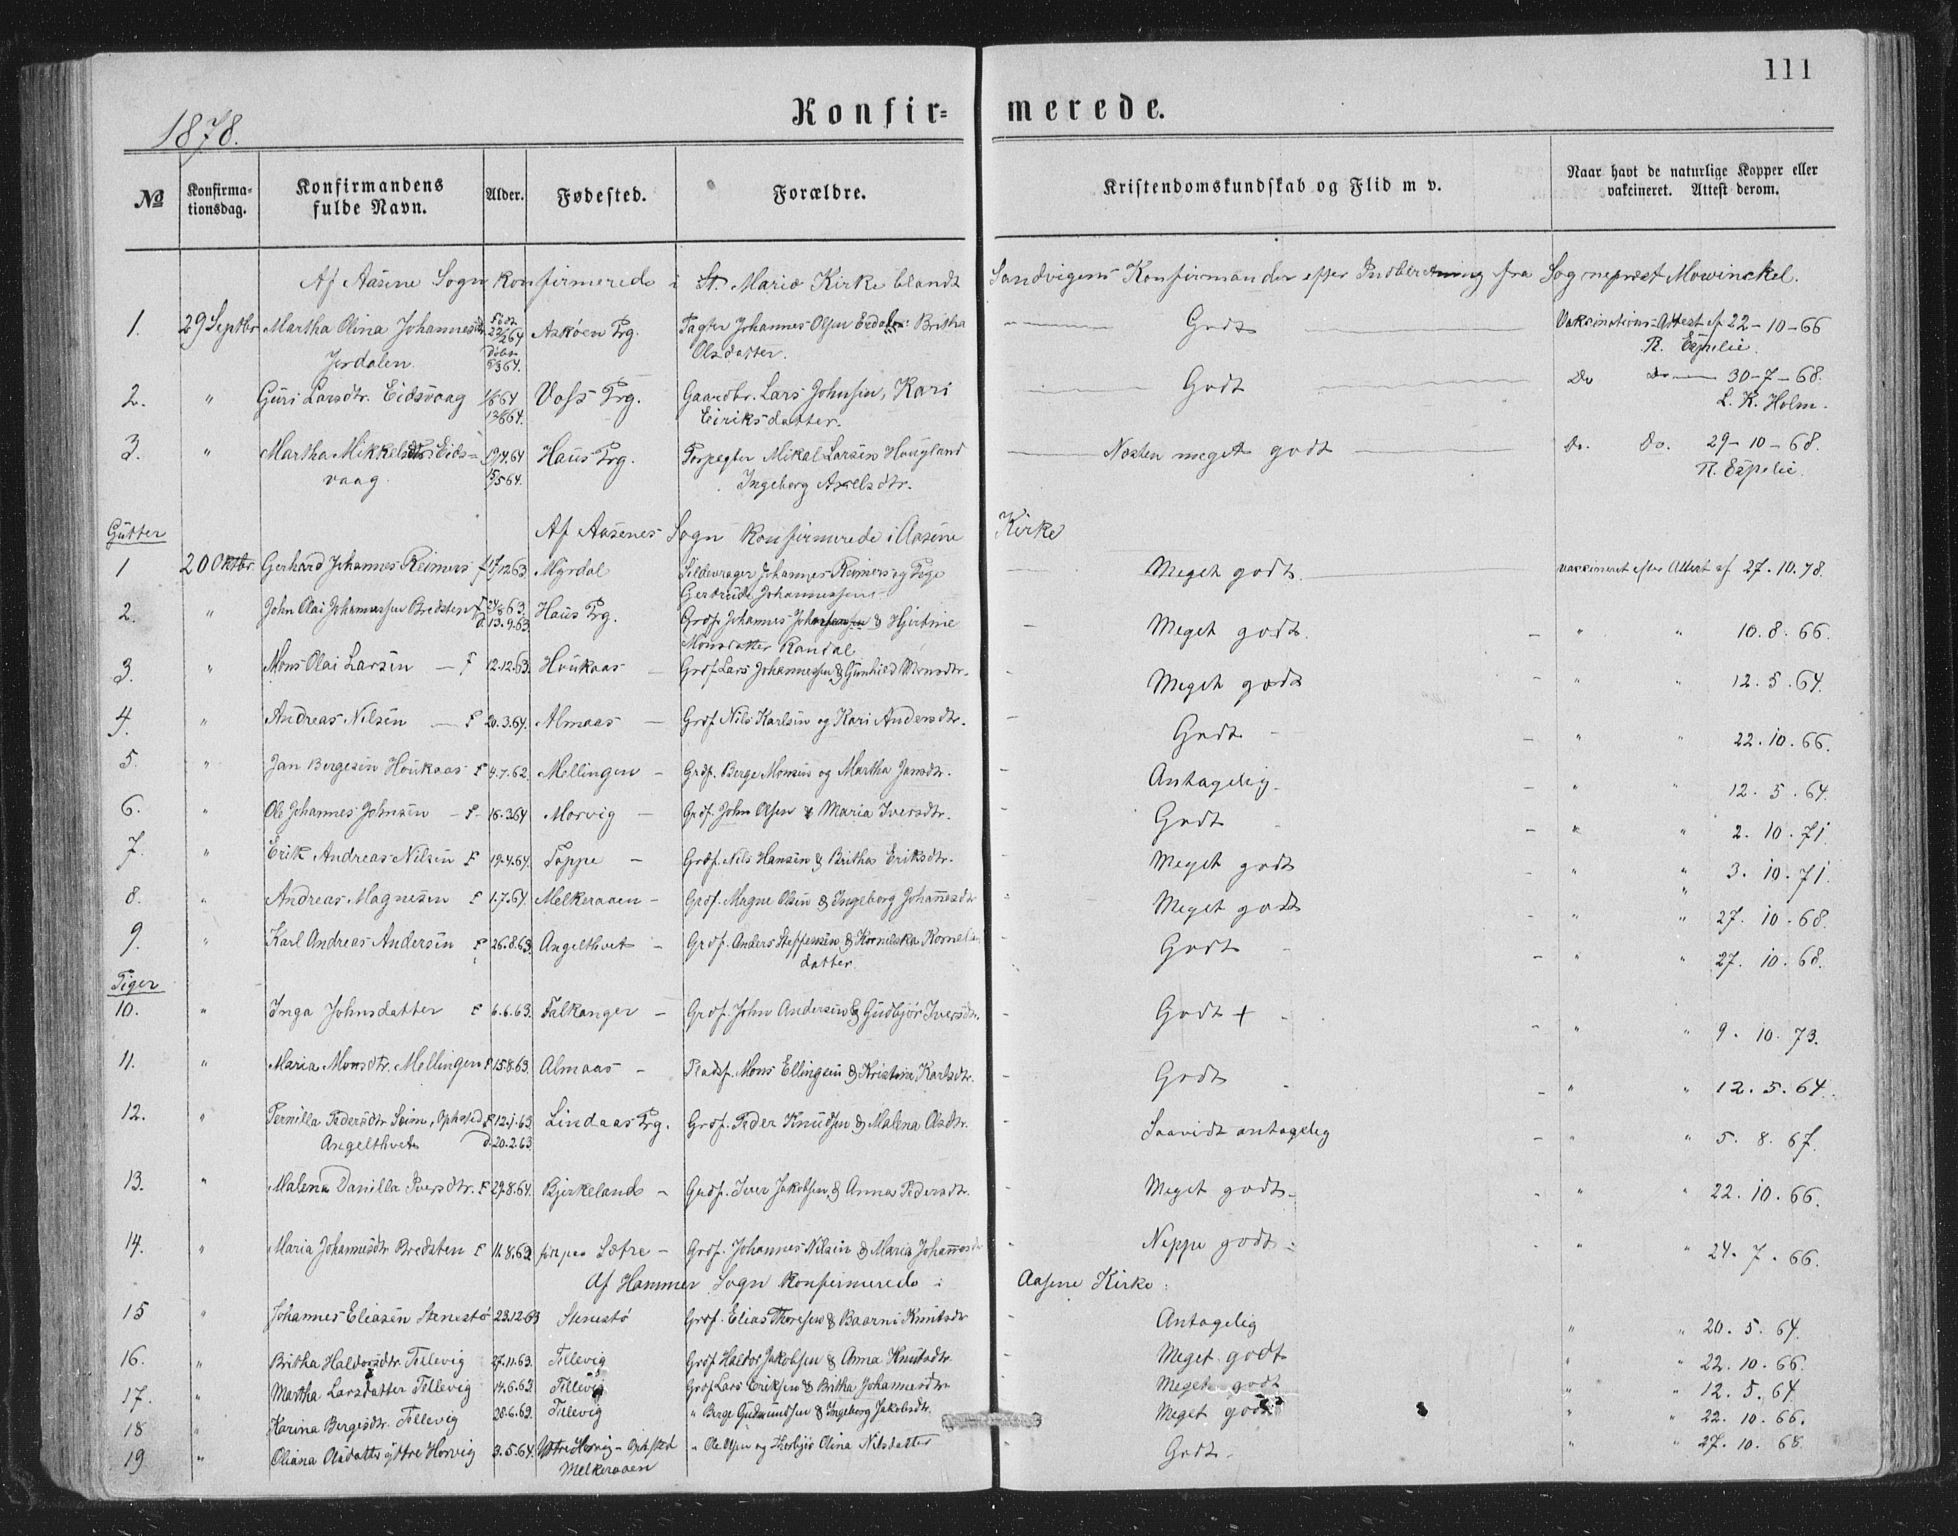 111
1878.
Konfir= merede.
№ Konfirma-tionsdag. Konfirmandens fulde Navn. Alder. Fødested. Forældre. Kristendomskundskab og Flid m v. Naar havt de naturlige Kopper eller vakcineret. Attest derom.
Af Aasene Sogn konfirmerede i St. Mariæ Kirke blandt Sandvigens Konfirmander efter Indberetning fra Sogneprest Mowinckel.
1. 29 Septbr Martha Olina Johannesdtr Født 22/2 64 Askøen Prg. Johannes Olsen Britha Godt Vaksinations-Attest af 22-10-66
Jordalen. Døbt 64. Olsdatter. R. Espelie.
2. " Guri Larsdtr. Eidsvaag 64 Voss Prg. Gaardbr. Lars Johnsen, Kari Godt Do Do 30-7-68.
64. Eiriksdatter. L. K. Holm.
3. " Martha Mikkelsdtr Eids= 19/4 64 Haus Prg. Forpagter Mikal Larsen Hougland Næsten meget godt Do. Do. 29-10-68.
vaag 15/5 64. Ingeborg Axelsdtr. R. Espelie.
Gutter Af Aasenes Sogn konfirmerede i Aasene Kirke
1 20 Oktbr Gerhard Johannes Reimers f 12 63 Myrdal Johannes Reimers og Pige Meget godt. vaccineret efter Attest af 27.10.78.
Gertrude Johannessen
2. " John Olai Johannessen Bredsten f 24/8 63. Haus Prg. Grdf. Johannes & Hjertine Meget godt. - " " 10.8.66.
d 13.9.63. Monsdatter Randal
3. " Mons Olai Larsen - F 12.12.63. Houkaas - Grdf Lars Johannessen & Gunhild Monsdtr. - Meget godt - " " 12.5.64.
4. " Andreas Nilsen - F 20.3.64. Almaas - Grdf Nils Karlsen og Kari Andersdtr. - Godt - - " " 22.10.66.
5. " Jan Bergesen Houkaas F 4.7.62. Mellingen - Grdf. Berge Monsen og Martha Jansdtr. - Antagelig - - " " 12.5.64.
6. " Ole Johannes Johnsen - F - 16.3.64 Morvig - Grdf. John Olsen & Maria Iversdtr. Godt - - " " 2.10.71.
7. " Erik Andreas Nilsen F 19.4.64. Toppe - Grdf. Nils Hansen & Britha Eriksdtr. - Meget godt - " " 3.10.71.
8. " Andreas Magnesen F 1.7.64. Melkeraaen - Grdf. Magne Olsen & Ingeborg Johannesdtr - Meget godt - " " 27.10.68.
9. " Karl Andreas Andersen F 26.8.63. Angelthvet - Grdf. Anders Steffensen & Kornels- - Godt - - " " 27.10.68.
datter
Piger
10. " Inga Johnsdatter F 6.6.63. Falkanger - Grdf. John Andersen & Gudbjør Iversdtr. - Godt + - - " " 9.10.73.
11. " Maria Monsdtr. Mellingen F 15.8.63. Almaas - Pladsf. Mons Ellingsen & Kristina Karlsdtr. - Godt - - " " 12.5.64.
12. " Pernilla Pedersdtr Seim, Ophsted F 12.1.63. Lindaas Prg. Grdf. Peder Knudsen & Malena Olsdtr. - Saavidt antagelig - " " 5.8.67.
Angelthvet d 20.2.63
13. " Malena Danilla Iversdtr. F 29.8.64. Bjerkelands - Grdf. Iver Jakobsen & Anna Pedersdtr. - Meget godt - - " " 22.10.66.
14. " Maria Johannesdtr Bredsten F 11.8.63. født paa Sætre - Grdf. Johannes Nilsen & Maria Johannesdtr - Neppe godt - - " " 24.7.66.
Af Hammer Sogn konfirmerede i Aasene Kirke:
15 " Johannes Eliasen Stenestø 23.12.63 Stenestø Grdf. Elias Thoresen & Baarni Knutsdtr - Antagelig " " 20.5.64.
16. " Britha Haldorsdtr. Tellevig 27.11.63. Tellevig Grdf Haldor Jakobsen & Anna Knutsdtr. Meget godt " " 22.10.66.
17. " Martha Larsdatter Tellevig 14.6.63. Tellevig Grdf Lars Eriksen & Britha Johannesdtr. Meget godt " " 12.5.64.
18 " Karina Bergesdtr. Tellevig 28.6.63. Tellevig " Berge Gudmundsen & Ingeborg Jakobsdtr. Meget godt " " 22.10.66.
19 " Oliana Olsdatter ytre Horvig 3.5.64. Ytre Horvig - Ophsted " Ole Olsen og Herborg Olina Nilsdatter - Godt - " " 27.10.68.
Melkeraaen